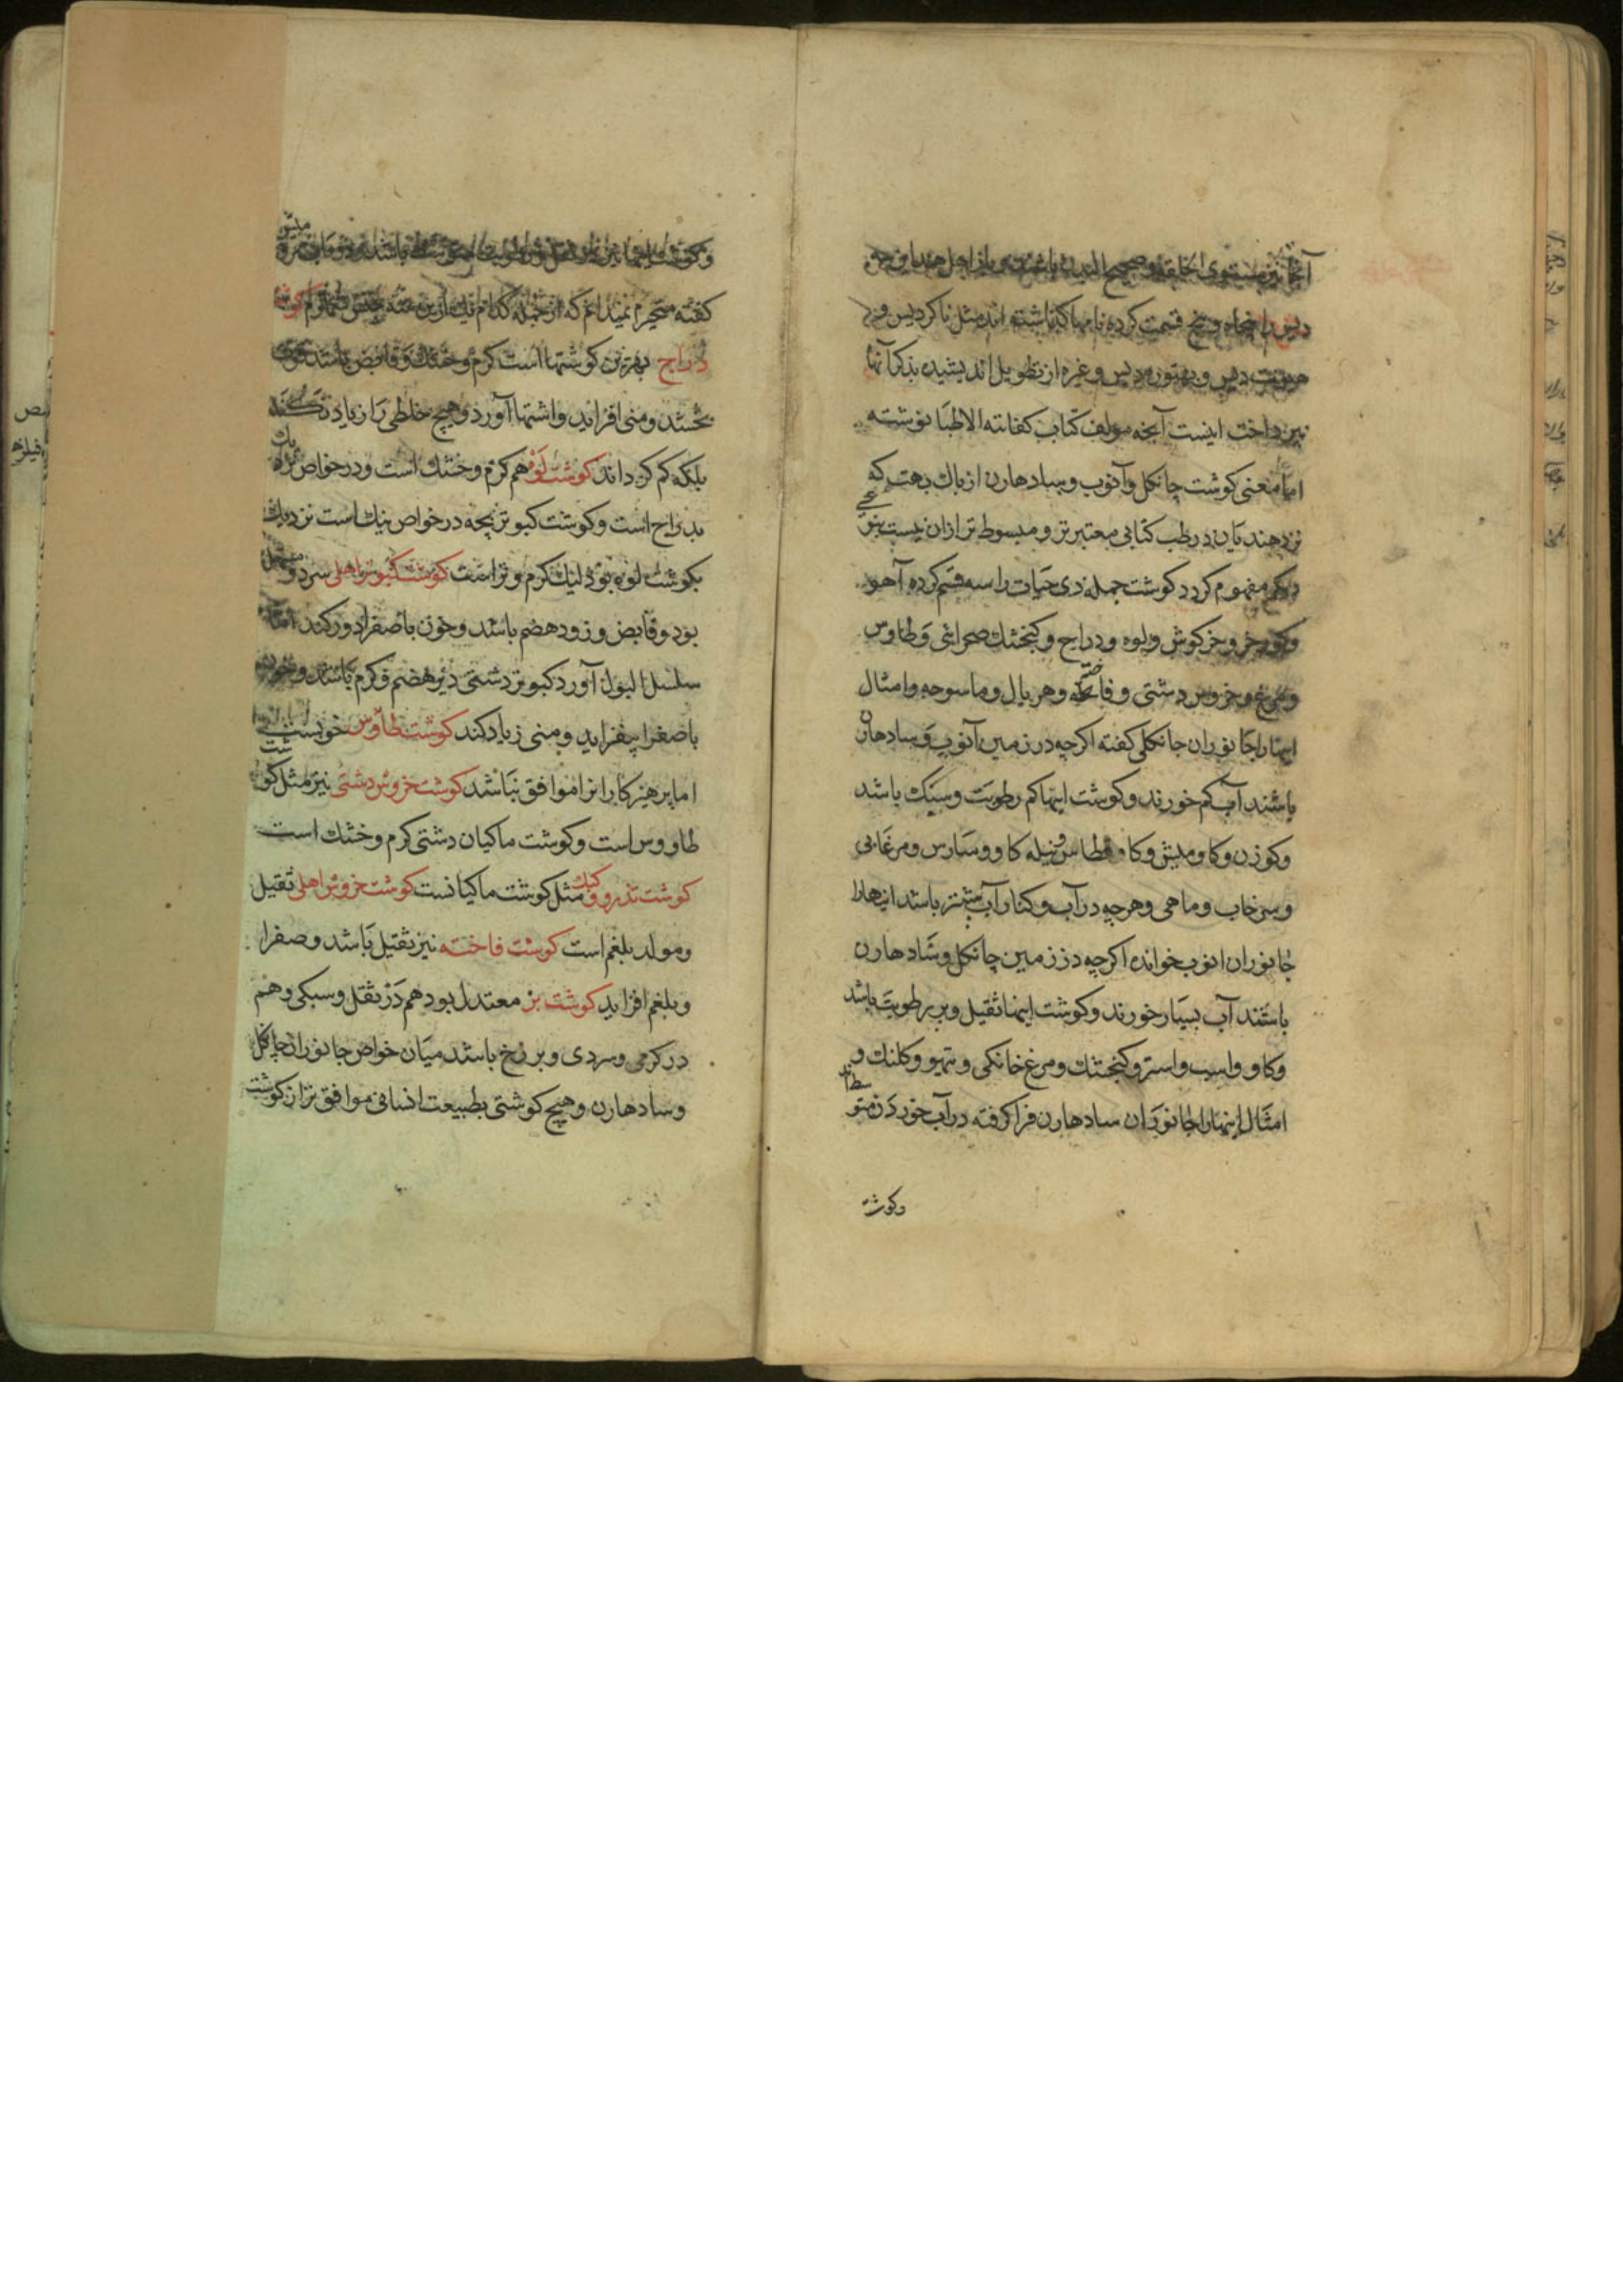 آنجا نیز مستوی الخلقه و صحیح البدن باشند
دیس را پنجاه و پنج قسمت کرده نامها گذاشته اند مثل ناکر دیس و
دیس و دیس و غیره از تطویل اندیشیده بذکر آنها
نپرداخت اینست آنچه مولف کتاب کفایته الاطبا نوشته
اما معنی کوشت جانکل و آنوب و سادهارن از باک بهت که
نزد هندیان در طب کتابی معتبرتر و مبسوط تر ازان نیست بنوعی
دیکر مفهوم کردد کوشت جمله ذی حیات را سه قسم کرده آهو
و کورخر و خرکوش و لوه و دراج و کنجشک صحرائی و طاوس
و مرغ و خروس دشتی و فاخته و هریال و ماسوجه و امثال
اینها را جانوران جانکلی کفته اکرچه در زمین آنوب و سادهارن
باشند آب کم خورند و کوشت اینها کم رطوبت و سبک باشد
و کوزن و کاومیش و کاو قطاس و نیله کاو و سارس و مرغابی
و سرخاب و ماهی و هرچه در آب و کنار آب بیشتر باشد اینها را
جانوران انوب خوانده اکرچه در زمین جانکل و سادهارن
باشند آب بسیار خورند و کوشت اینها ثقیل و پر رطوبت باشد
و کاو و اسب و استر و کنجشک و مرغ خانکی و تیهو و کلنک و
امثال اینها را جانوران سادهارن فرا کرفته در آب خوردن متوسط اند
وکوشت
و کوشت اینها نیز در ثقل و رطوبت متوسط باشد
کفته متحیرم نمیدانم که از جمله کدام یک ازین سه جنس شمارم کوشت
دراج بهترین کوشتها است کرم و خشک و قابض باشد قوت
بخشد و منی افزاید و اشتها آورد و هیچ خلطی را زیاد نکند
بلکه کم کرداند کوشت لوه هم کرم و خشک است و در خواص نزدیک
بدراج است و کوشت کبوتر بچه در خواص نیک است نزدیک
بکوشت لوه بود لیک کرم و تر است کوشت کبوتر اهلی سرد و
بود و قابض و زود هضم باشد و خون با صفرا دور کند اما
سلسل البول آورد کبوتر دشتی دیر هضم و کرم باشد و خون
با صفرا بیفزاید و منی زیاد کند کوشت طاوس خوبست
اما پرهیزکارانرا موافق نباشد کوشت خروس دشتی نیز مثل کوشت
طاووس است و کوشت ماکیان دشتی کرم و خشک است
کوشت تذرو و کبک مثل کوشت ماکیانست کوشت خروس اهلی ثقیل
و مولد بلغم است کوشت فاخته نیز ثقیل باشد و صفرا
و بلغم افزاید کوشت بز معتدل بود هم در ثقل و سبکی و هم
در کرمی و سردی و برزخ باشد میان خواص جانوران جانکل
و سادهارن و هیچ کوشتی بطبیعت انسانی موافق تر از کوشت